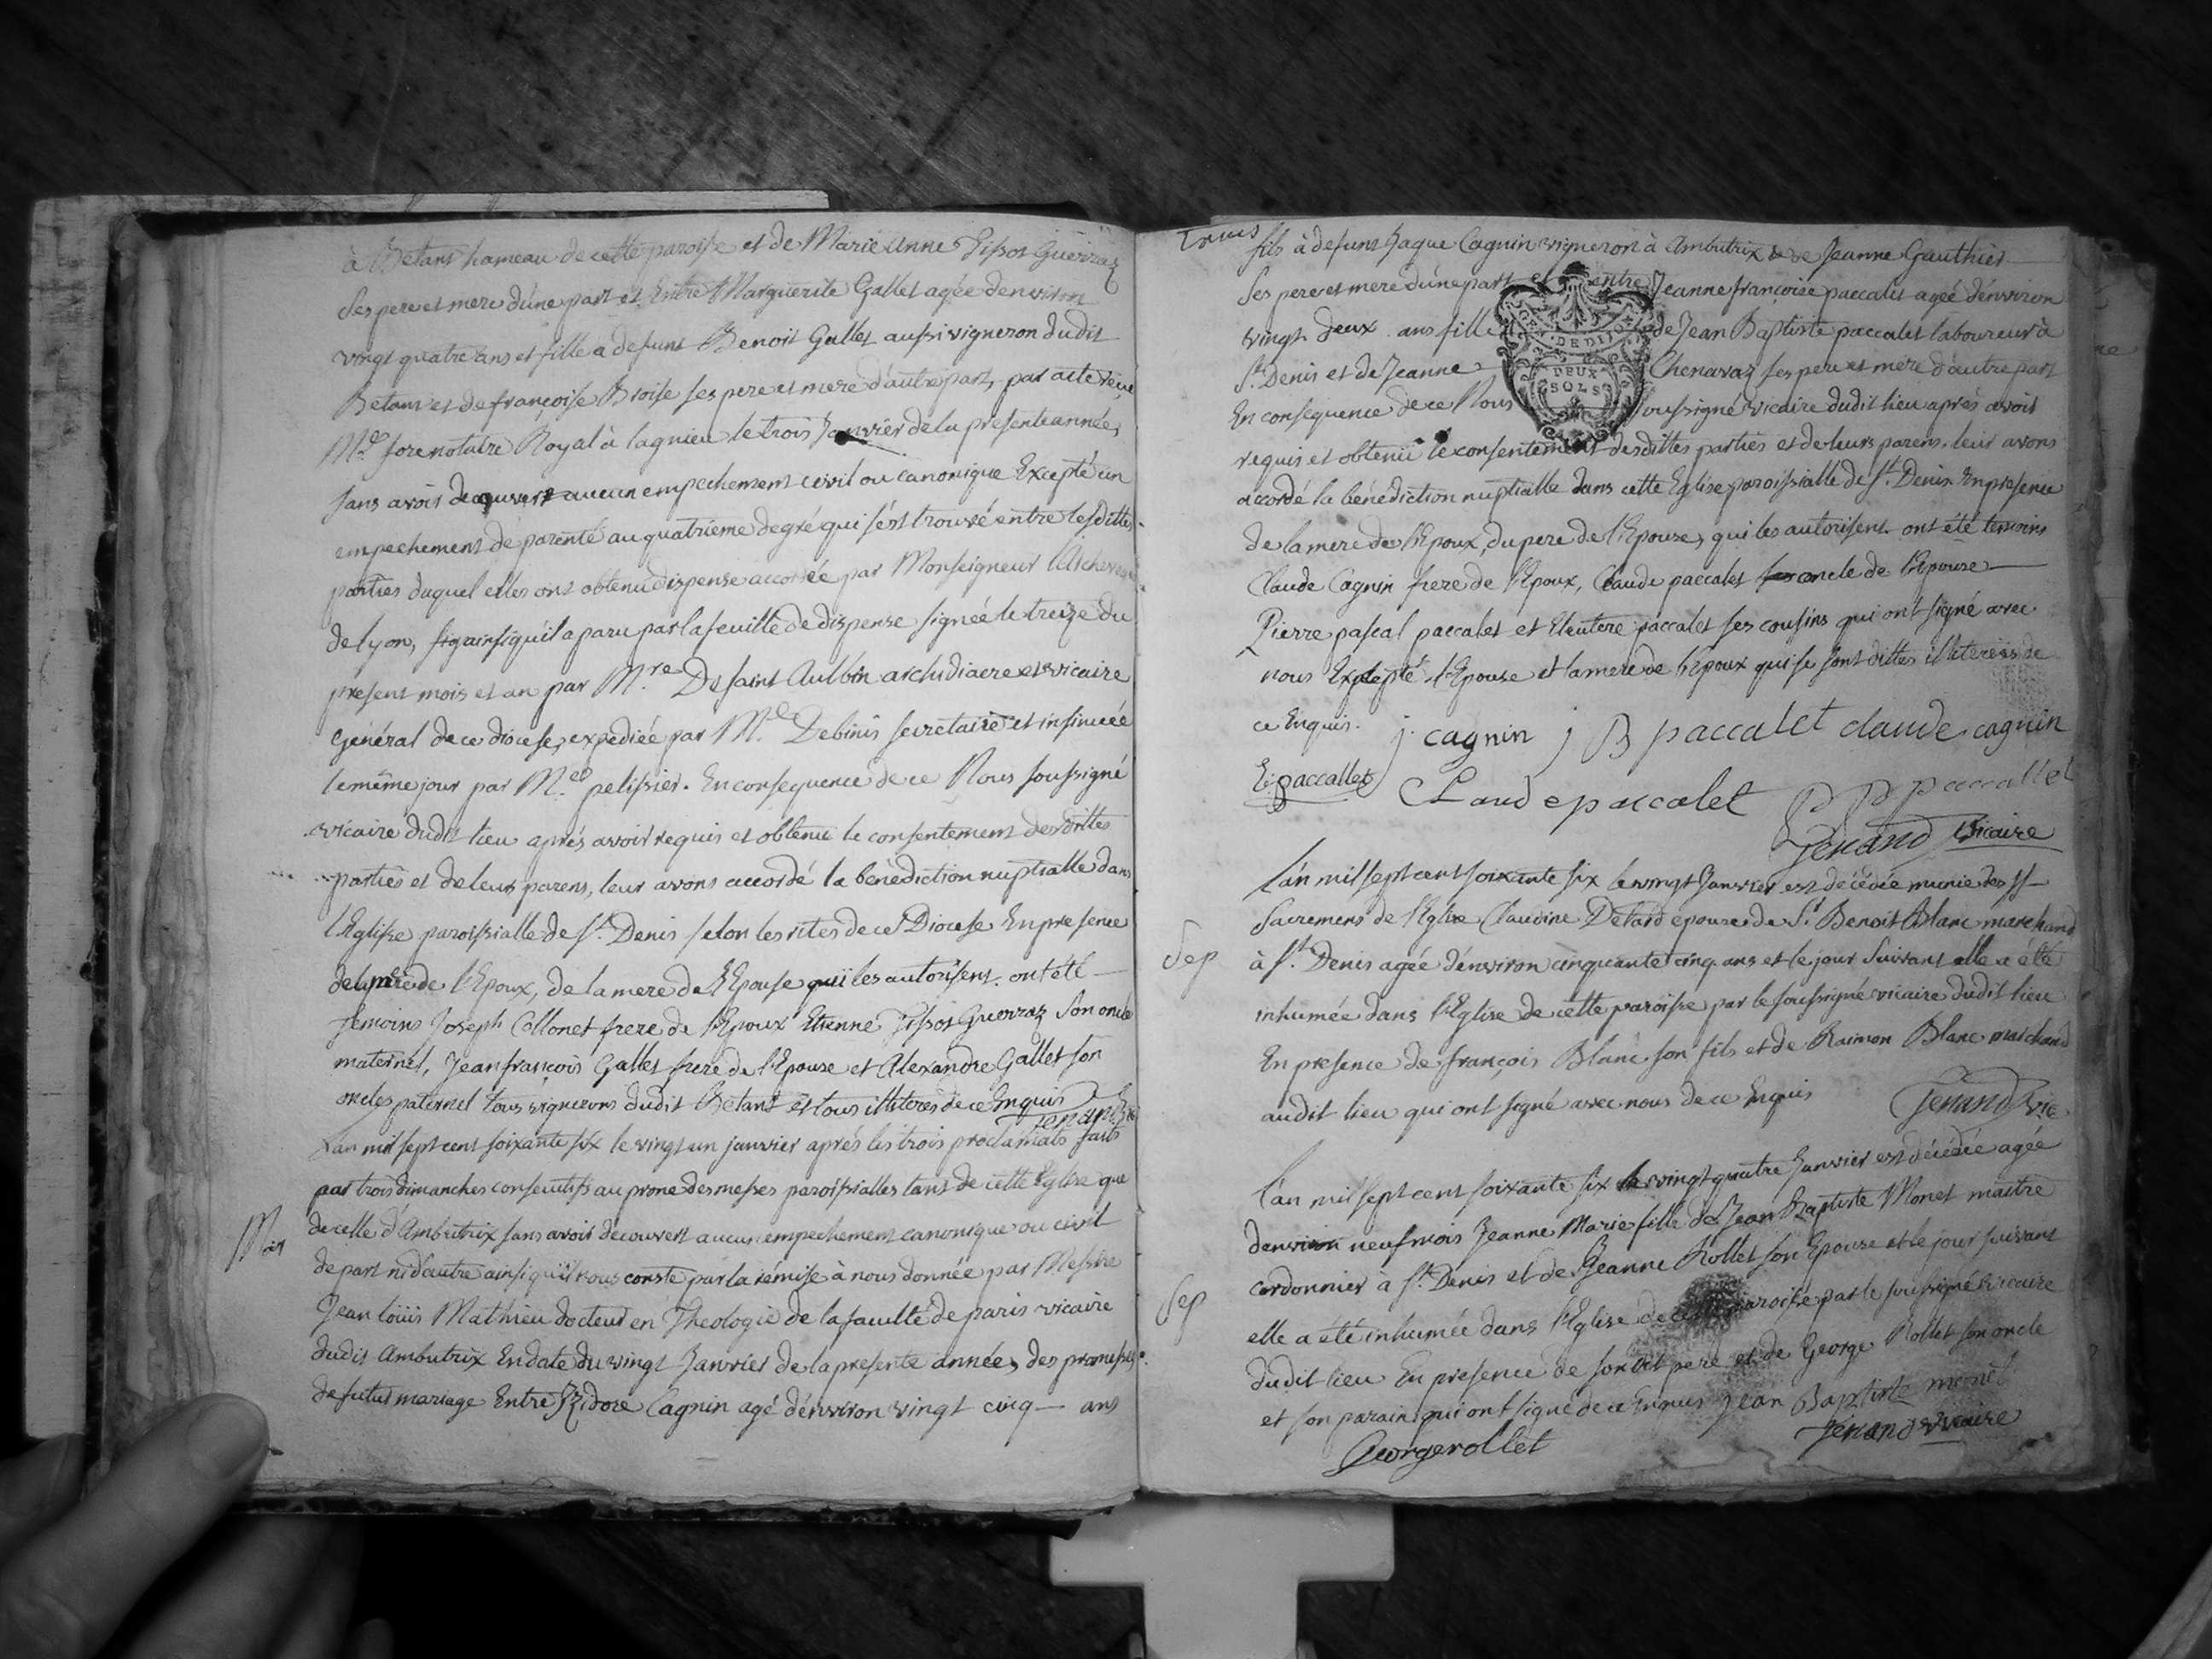 à Betans hameau de cette paroisse et de Marie Anne Tissot Guerraz
ses pere et mere d'une part et Entre Marguerite Gallet agée denviron
vingt quatre ans et fille a defunt Benoit Gallet aussi vigneron dudit
Betans et de françoise Broise ses pere et mere d'autre part, par acte reçu
Me. fore notaire Royal à lagnieu le trois Janvier de la presente année,
sans avoir decouvert aucun empechement civil ou canonique Excepté un
empechement de parenté au quatrieme degré qui s'est trouvé entre lesdittes
parties duquel elles ont obtenu dispense accordée par Monseigneur l'Archeveque
de lyon, ainsi qu'il a paru par la feuille de dispense signée le treize du
present mois et an par Mre. De saint Aulbin archidiacre et vicaire
général de ce diocese, expediée par Me. Debinis secretaire et insinuée
le même jour par Me. pelissier. En consequence de ce Nous soussigné
vicaire dudit lieu aprés avoir requis et obtenu le consentement desdittes
parties et de leurs parens, leur avons accordé la bénediction nuptialle dans
l'Eglise paroissialle de St. Denis selon les rites de ce Diocese En presence
de la mere de l'Epoux, de la mere de l'Epouse qui les autorisent. ont été
temoins Joseph Collonet frere de l'Epoux Etienne Tissot Guerraz son oncle
maternel, Jean françois Gallet frere de l'Epouse et Alexandre Gallet son
oncle paternel tous vignerons dudit Betans et tous illiteres de ce Enquis
Jenand vic
L'an mil sept cent soixante six le vingt un janvier aprés les trois proclamats faits
par trois dimanches consecutifs au prone des messes paroissialles tant de cette Eglise que
de celle d'Ambutrix sans avoir decouvert aucun empechement canonique ou civil
de part ni d'autre ainsi qu'il nous conste par la remise à nous donnée par Messire
Jean loüis Mathieu docteur en Theologie de la faculté de paris vicaire
dudit Ambutrix En date du vingt Janvier de la presente année, des promesses
de futur mariage Entre Izidore Cagnin agé d'environ vingt cinq ans
fils à defunt Jaque Cagnin vigneron à Ambutrix & de Jeanne Gauthier
ses pere et mere d'une part et entre Jeanne françoise paccalet agée d'environ
vingt deux ans fille de Jean Baptiste paccalet laboureur à
St. Denis et de Jeanne Chenavaz ses pere et mere d'autre part
En consequence de ce Nous soussigné vicaire dudit lieu après avoir
GEN. DE DIJON
DEUX
SOLS
requis et obtenu le consentement desdittes parties et de leurs parens. leur avons
accordé la bénediction nuptialle dans cette Eglise paroissialle de St. Denis En presence
de la mere de l'Epoux, du pere de l'Epouse, qui les autorisent ont été temoins
Claude Cagnin frere de l'Epoux, Claude paccalet oncle de l'Epouse
Pierre pascal paccalet et Eleutere paccalet ses cousins qui ont signé avec
nous Excepté l'Epouse et la mere de l'Epoux qui se sont dittes illiterées de
ce Enquis.
j. cagnin j B paccalet claude cagnin
E. paccallet Claude paccalet P P paccallet
Jenand vicaire
L'an mil sept cent soixante six le vingt Janvier est décédée munie des SS
Sacremens de l'Eglise Claudine Detard epouse de Sr. Benoit Blanc marchand
Sep
à St. Denis agée d'environ cinquante cinq ans et le jour suivant elle a été
inhumée dans l'Eglise de cette paroisse par le soussigné vicaire dudit lieu
En presence de françois Blanc son fils et de Raimon Blanc marchand
audit lieu qui ont signé avec nous de ce Enquis
Jenand vic
L'an mil sept cent soixante six le vingt quatre Janvier est décédée agée
denviron neuf mois Jeanne Marie fille de Jean Baptiste Monet maitre
cordonnier à St. Denis et de Jeanne Rollet son Epouse et le jour suivant
Sep
elle a été inhumée dans l'Eglise de cette paroisse par le soussigné vicaire
dudit lieu En presence de sondit pere et de George Rollet son oncle
et son parain qui ont signé de ce Enquis Jean Baptiste monet
George rollet
Jenand vicaire